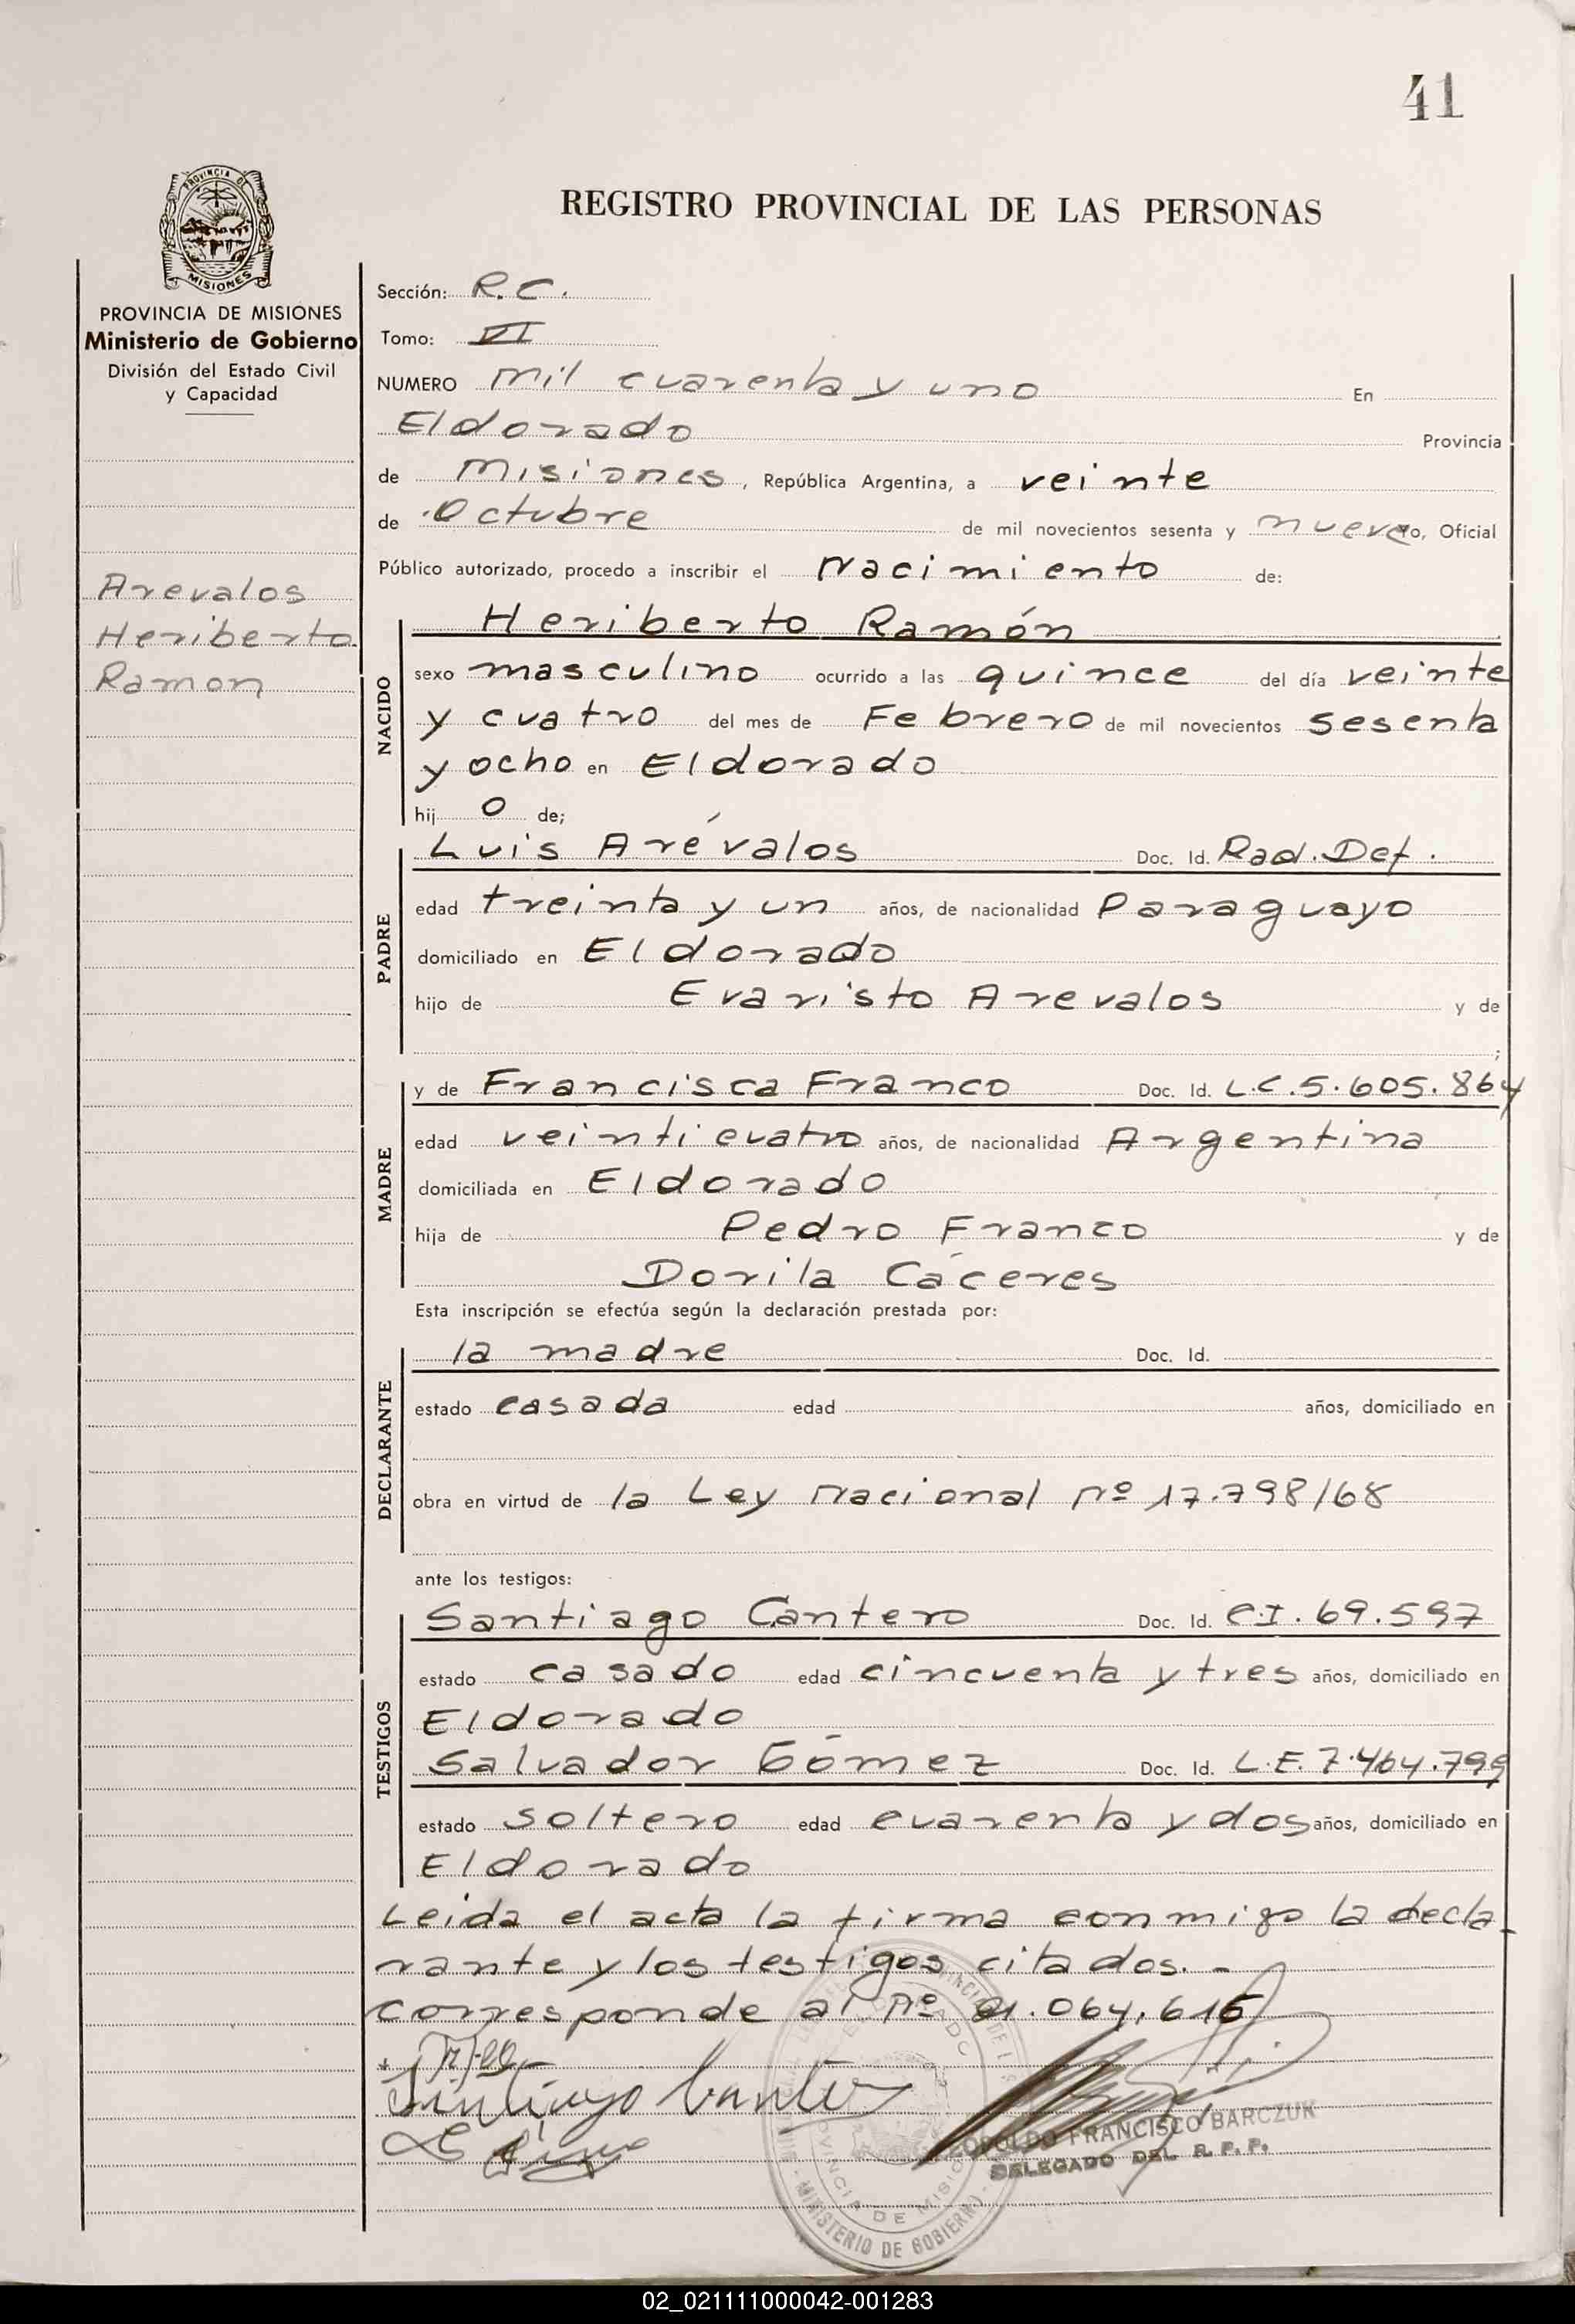 41
PROVINCIA DE
MISIONES
REGISTRO PROVINCIAL DE LAS PERSONAS
PROVINCIA DE MISIONES
Ministerio de Gobierno
División del Estado Civil
y Capacidad
Arevalos
Heriberto
Ramon
Sección: R.C.
Tomo: VI
NUMERO mil cuarenta y uno En
Eldorado Provincia
de Misiones, República Argentina, a veinte
de Octubre de mil novecientos sesenta y nueve Yo, Oficial
Público autorizado, procedo a inscribir el Nacimiento de:
NACIDO
Heriberto Ramón
sexo masculino ocurrido a las quince del día veinte
y cuatro del mes de Febrero de mil novecientos sesenta
y ocho en Eldorado
hij o de;
PADRE
Luis Arévalos Doc. Id. Rad. Def.
edad treinta y un años, de nacionalidad Paraguayo
domiciliado en Eldorado
hijo de Evaristo Arevalos y de
;
MADRE
y de Francisca Franco Doc. Id. L.C. 5.605.864
edad veinticuatro años, de nacionalidad Argentina
domiciliada en Eldorado
hija de Pedro Franco y de
Dorila Cáceres
Esta inscripción se efectúa según la declaración prestada por:
DECLARANTE
la madre Doc. Id.
estado casada edad años, domiciliado en
obra en virtud de la Ley Nacional nº 17.798/68
ante los testigos:
TESTIGOS
Santiago Cantero Doc. Id. C.I. 69.597
estado casado edad cincuenta y tres años, domiciliado en
Eldorado
Salvador Gómez Doc. Id. L.E. 7.464.799
estado soltero edad cuarenta y dos años, domiciliado en
Eldorado
Leida el acta la firma conmigo la decla-
rante y los testigos citados.-
Corresponde al nº 01.064.616
Santiago Cantero
LEOPOLDO FRANCISCO BARCZUK
DELEGADO DEL R. P. P.
ELDORADO
PROVINCIA DE MISIONES
MINISTERIO DE GOBIERNO
02_021111000042-001283